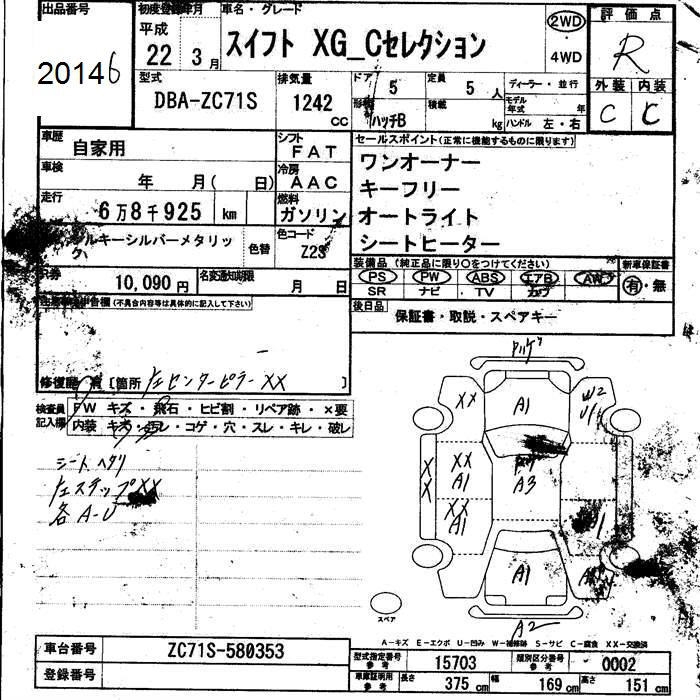 出品番号
20146
初度登録年月
平成
22年 3月
車名・グレード
スイフト XG_Cセレクション
2WD
4WD
評価点
R
外装 内装
C C
型式
DBA-ZC71S
排気量
1242
cc
ドア 5
定員 5 人
ディーラー・並行
形状 ハッチB
積載 kg
モデル年式 年
ハンドル 左・右
車歴
自家用
シフト
FAT
車検
年 月( 日)
冷房
AAC
走行
6万8千925 km
燃料
ガソリン
シルキーシルバーメタリック
色替
色コード
Z23
R券
10,090 円
名変通知期限
月 日
セールスポイント(正常に機能するものに限ります)
ワンオーナー
キーフリー
オートライト
シートヒーター
装備品 (純正品に限り○をつけてください)
新車保証書
PS PW ABS エアB AW
有・無
SR ナビ TV
後日品
保証書・取説・スペアキー
(不具合内容等は具体的に記入して下さい)
修復歴 有 [箇所 左センターピラーXX ]
検査員
記入欄
FW キズ・飛石・ヒビ割・リペア跡・×要
内装 キズ・汚レ・コゲ・穴・スレ・キレ・破レ
シートヘタリ
左ステップXX
各A-U
XX
A1
W2
XX
XX
A1
A3
XX
A1
A1
A2
スペア
A-キズ E-エクボ U-凹み W-補修跡 S-サビ C-腐食 XX-交換済
車台番号
ZC71S-580353
登録番号
型式指定番号
参考
15703
類別区分番号
参考
0002
車庫証明用
参考
長さ 375 cm
幅 169 cm
高さ 151 cm